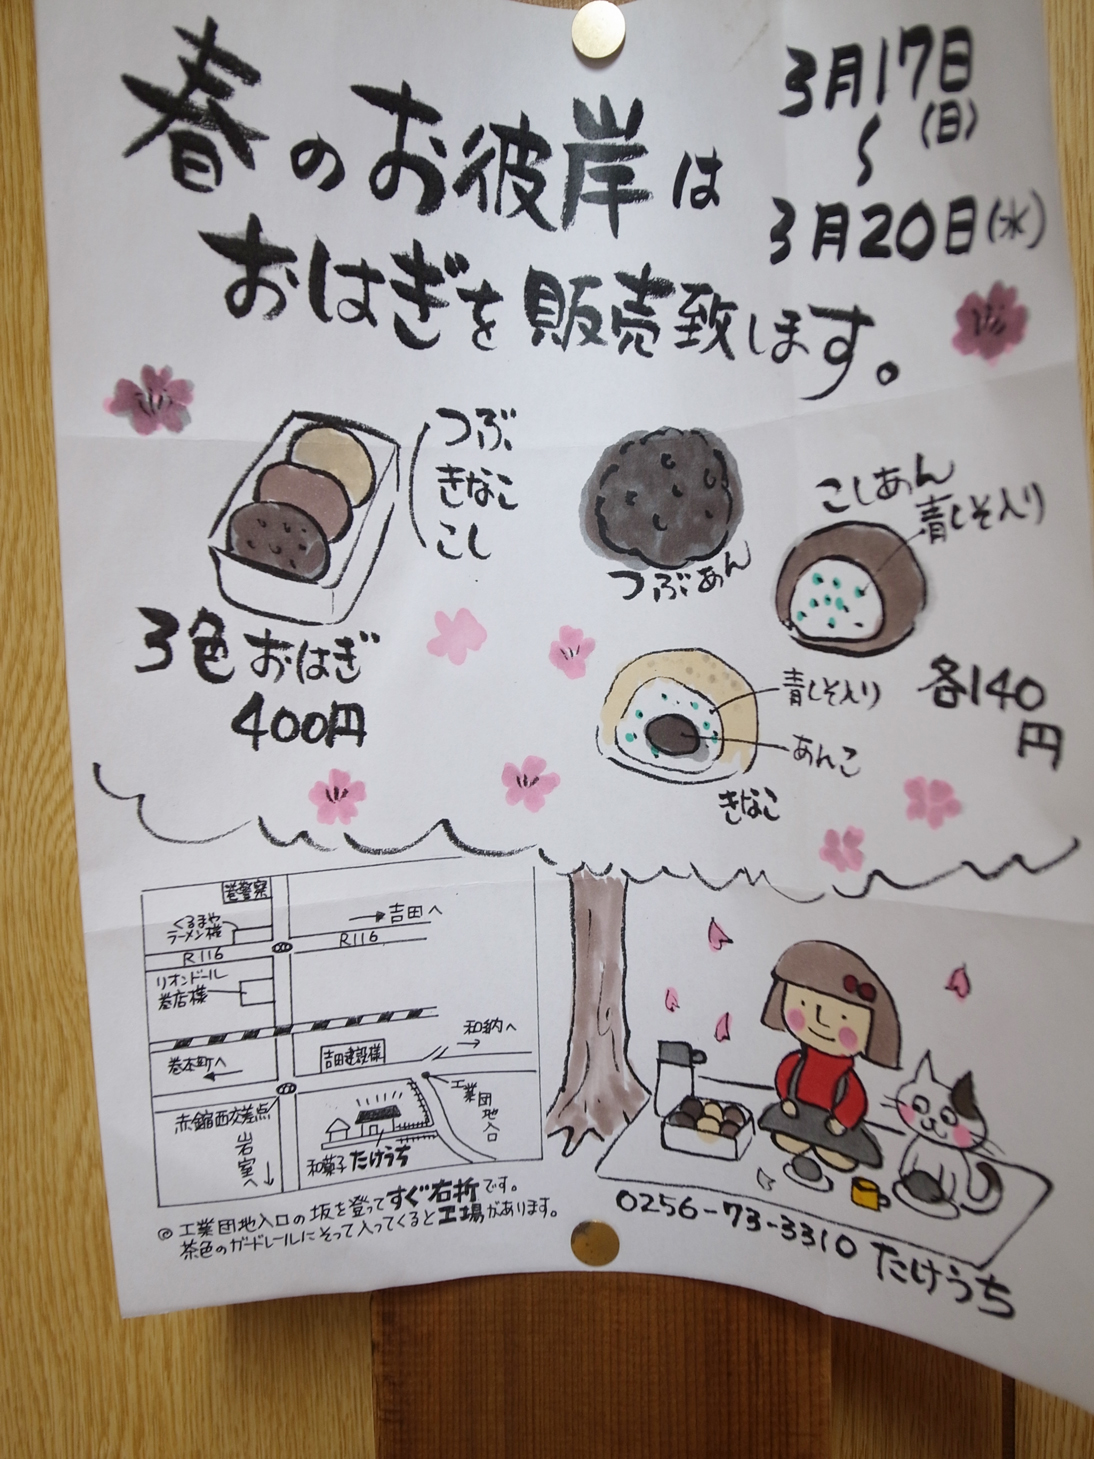 春のお彼岸は
おはぎを販売致します。
3月17日
(日)
〜
3月20日(水)
つぶ
きなこ
こし
3色おはぎ
400円
つぶあん
こしあん
青しそ入り
青しそ入り
あんこ
きなこ
各140
円
巻警察
→吉田へ
くるまや
ラーメン様
R116
R116
リオンドール
巻店様
和納へ
→
吉田建設様
巻本町へ
←
工業団地入口
赤鏥西交差点
岩室へ↓
和菓子たけうち
◎工業団地入口の坂を登ってすぐ右折です。
茶色のガードレールにそって入ってくると工場があります。
0256-73-3310 たけうち